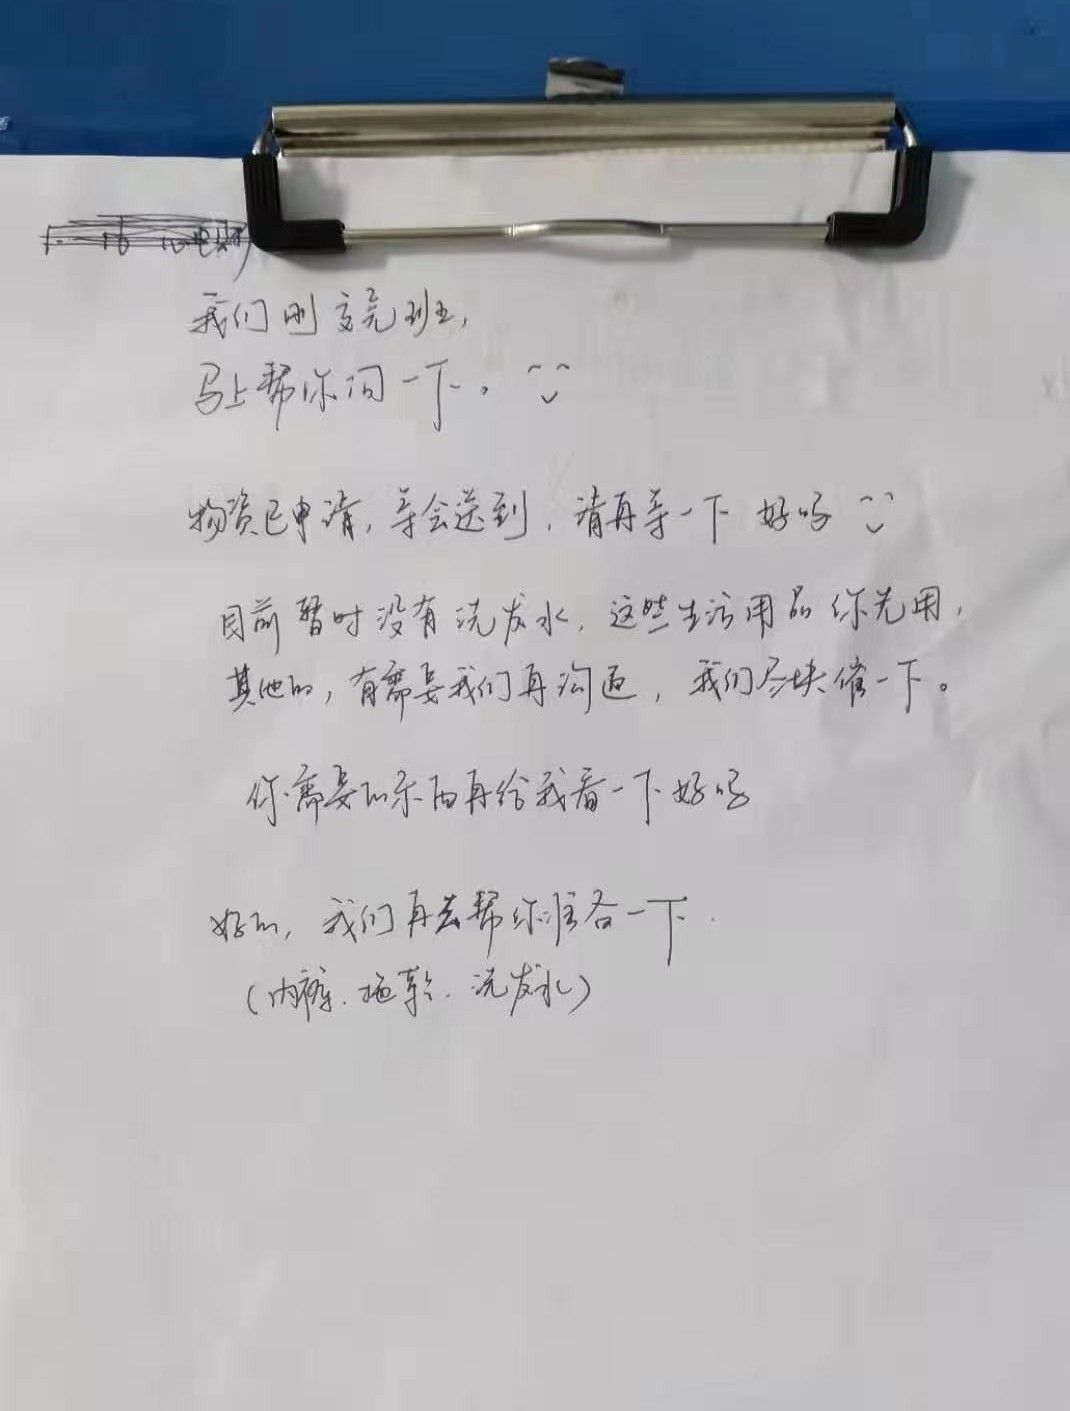 我们刚交完班，
马上帮你问一下。
物资已申请，等会送到，请再等一下 好吗
目前暂时没有洗发水，这些生活用品你先用，
其他的，有需要我们再沟通，我们尽快催一下。
你需要的东西再给我看一下好吗
好的，我们再去帮你准备一下.
（内裤.拖鞋.洗发水）